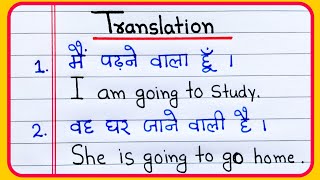 Translation
1. मैं पढ़ने वाला हूँ ।
I am going to study.
2. वह घर जाने वाली है ।
She is going to go home.